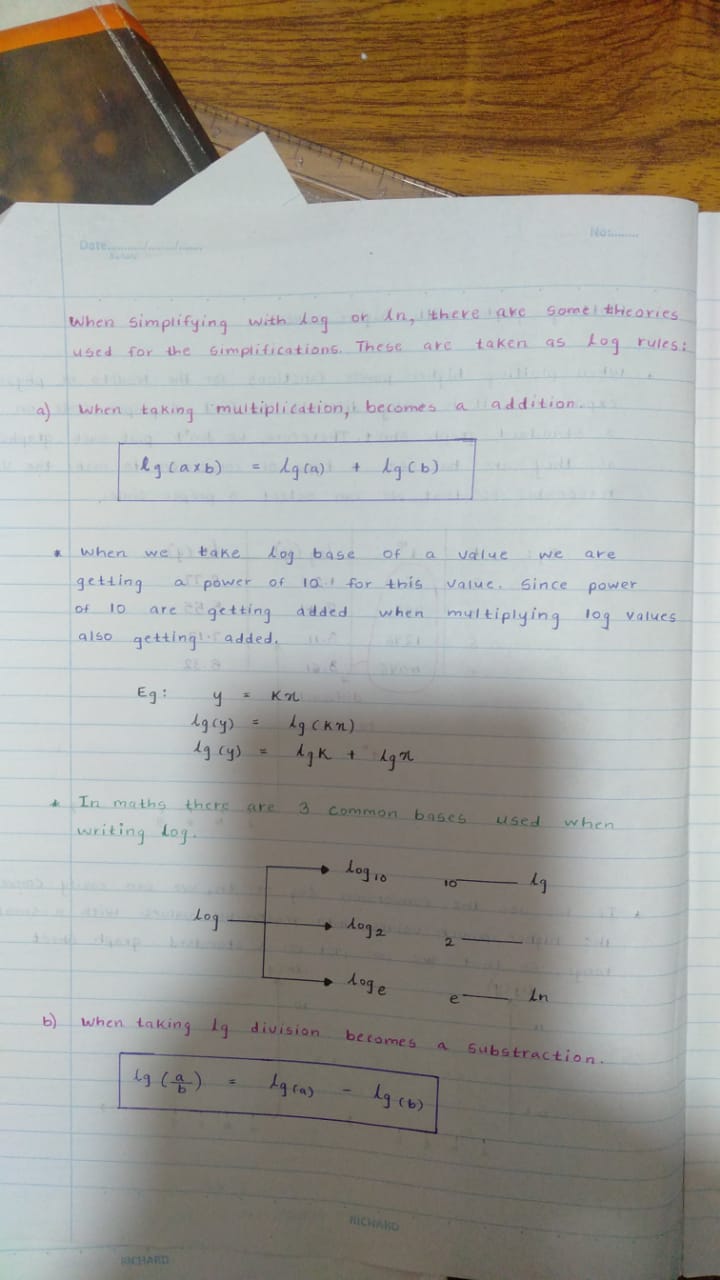 Date......../......../........
No:........
When simplifying with log or ln, there are some theories
used for the simplifications. These are taken as log rules:
a) When taking multiplication, becomes a addition.
lg(a×b) = lg(a) + lg(b)
* When we take log base of a value we are
getting a power of 10 for this value. Since power
of 10 are getting added when multiplying log values
also getting added.
Eg: y = Kx
lg(y) = lg(Kx)
lg(y) = lgK + lgx
* In maths there are 3 common bases used when
writing log.
log₁₀ 10 —— lg
log log₂ 2 ——
logₑ e —— ln
b) When taking lg division becomes a substraction.
lg(a/b) = lg(a) - lg(b)
RICHARD
RICHARD